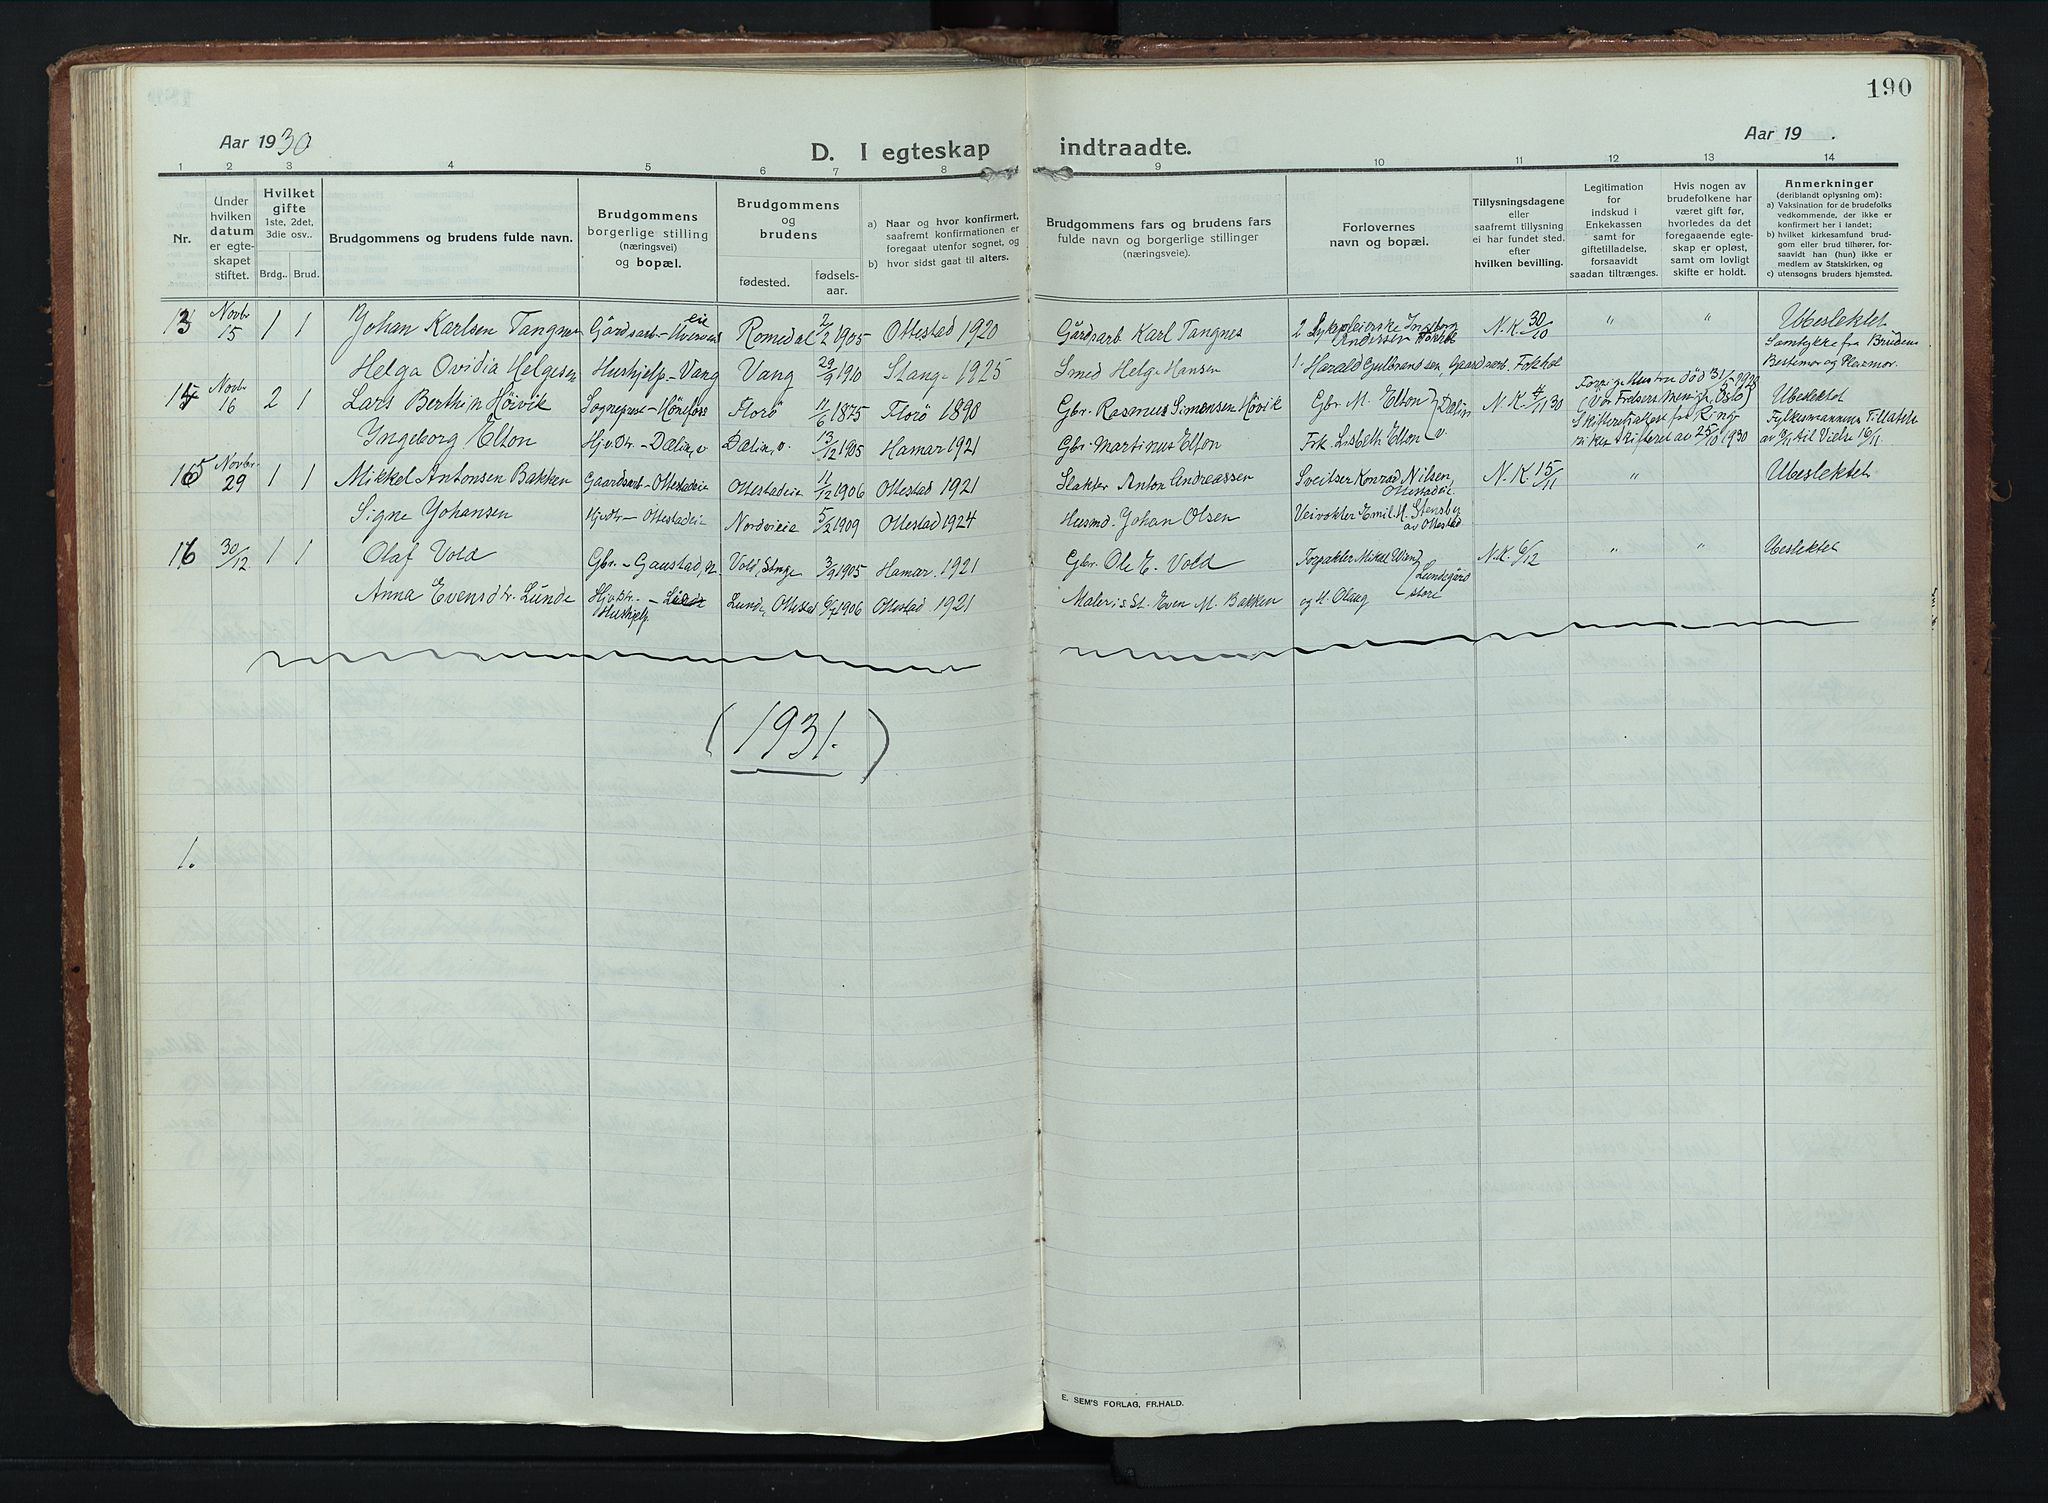 190
Aar 1930
D. I egteskap indtraadte.
Aar 19 .
1 2 3 4 5 6 7 8 9 10 11 12 13 14
Nr.
Under hvilken datum er egteskapet stiftet.
Hvilket gifte 1ste, 2det, 3die osv..
Brdg.. Brud.
Brudgommens og brudens fulde navn.
Brudgommens borgerlige stilling (næringsvei) og bopæl.
Brudgommens og brudens
fødested. fødsels-aar.
a) Naar og hvor konfirmert, saafremt konfirmationen er foregaat utenfor sognet, og
b) hvor sidst gaat til alters.
Brudgommens fars og brudens fars fulde navn og borgerlige stillinger (næringsveie).
Forlovernes navn og bopæl.
Tillysningsdagene eller saafremt tillysning ei har fundet sted. efter hvilken bevilling.
Legitimation for indskud i Enkekassen samt for giftetilladelse, forsaavidt saadan tiltrænges.
Hvis nogen av brudefolkene har været gift før, hvorledes da det foregaaende egteskap er opløst, samt om lovligt skifte er holdt.
Anmerkninger (deriblandt oplysning om):
a) Vaksination for de brudefolks vedkommende, der ikke er konfirmert her i landet;
b) hvilket kirkesamfund brudgom eller brud tilhører, forsaavidt han (hun) ikke er medlem av Statskirken, og
c) utensogns bruders hjemsted.
13 Novbr 15 1 1 Johan Karlsen Tangnes Gårdsarb- Romedal 2/2 1905 Ottestad 1920 Gårdsarb Karl Tangnes 2 Sykepleierske Ingeborg Andersen N.K. 30/10 " " Ubeslektet
Helga Ovidia Helgesen Hushjelp - Vang Vang 29/9 1910 Stange 1925 Smed Helge Hansen 1. Harald Gulbrandsen Gaardsarb. Samtykke fra Brudens Bestemor og Pleiemor.
14 Novbr 16 2 1 Lars Berthin Höivik Sogneprest - Hönefoss Florö 11/6 1875 Florö 1890 Gbr. Rasmus Simonsen Hövik Gbr M. Elton N.K. 4/11 30 Forrige Hustru död 31/5 1928 (Vor Frelsers Menigh, Oslo) Ubeslektet
Ingeborg Elton Hjv.Dtr. - Dælin, v Dælin, v. 13/12 1905 Hamar 1921 Gbr Martinus Elton Frk Lisbeth Elton Dælin v Skifteattest fra Ringerikes skifteret av 25/10 1930 Fylkesmannens Tillatelse av til Vielse 16/11
15 Novbr 29 1 1 Mikkel Antonsen Bakken Gaardsarb - Ottestadeie Ottestadeie 11/12 1906 Ottestad 1921 Slakter Anton Andreassen Sveitser Konrad Nilsen, Ottestadeie N.K. 15/11 " Ubeslektet
Signe Johansen Hjv.dtr - Ottestadeie Nordvieie 5/2 1909 Ottestad 1924 Husmd. Johan Olsen Veivokter Emil H. Stensby av Ottestad
16 30/12 1 1 Olaf Vold Gbr. - Gaustad, n. Vold, Stange 3/9 1905 Hamar. 1921 Gbr. Ole E. Vold Forpakter Mikkel N.K. 6/12 " " Ubeslektet
Anna Evensdtr. Lunde Hjv.Dtr. - Hushjelp. Lunde, Ottestad 6/7 1906 Ottestad 1921 Malermst. Even M. Bakken og H. Olaug Lundgård store
(1931.)
1.
E. SEM'S FORLAG, FR.HALD.